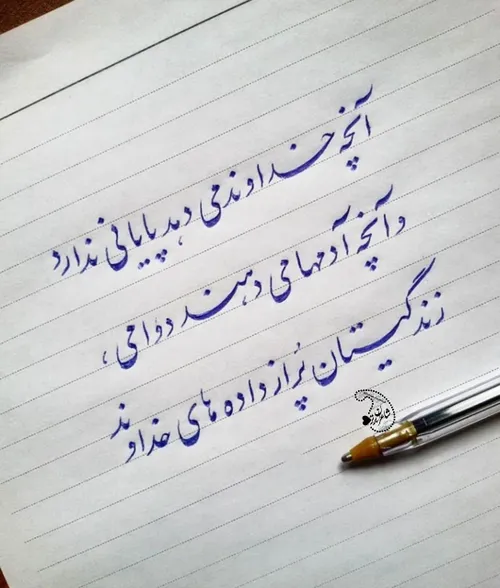 آنچه خداوند می دهد پایانی ندارد
و آنچه آدمها می دهند دوامی ،
زندگیتان پُر از داده های خداوند